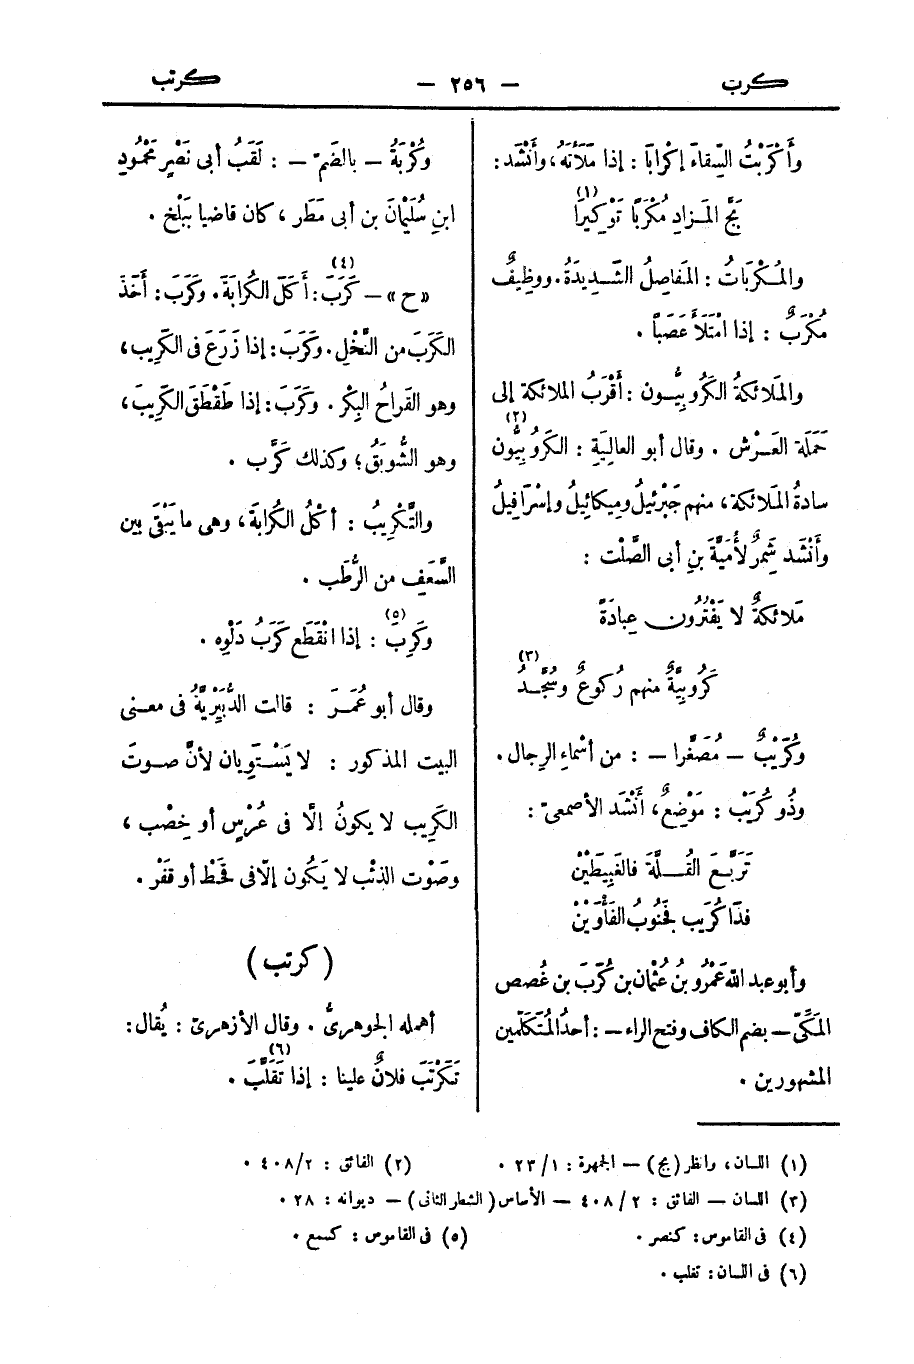 كرب — ٢٥٦ — كرتب
وأَكْرَبْتُ السِّقاءَ إِكْرابًا : إذا مَلَأْتَهُ، وأَنْشَد :
بَجَّ المَزادِ مُكْرَبًا تَوْكِيرَا (١)
والمُكْرَباتُ : المَفاصِلُ الشَّدِيدَةُ. ووظِيفٌ
مُكْرَبٌ : إذا امْتَلَأَ عَصَباً .
والمَلائكةُ الكَرُوبِيُّون : أَقْرَبُ الملائكة إلى
حَمَلَة العَرْش . وقال أبو العالِيَةِ : الكَرُوبِيُّون (٢)
سادةُ المَلائكة، منهم جَبْرئيلُ وميكائيلُ وإسْرافيلُ
وأَنْشَد شَمِرٌ لأُمَيَّةَ بنِ أبى الصَّلْت :
مَلائكةٌ لا يَفْتُرُون عِبادَةً
كَرُوبِيَّةٌ منهم رُكُوعٌ وسُجَّدُ (٣)
وكُرَيْبٌ – مُصَغَّرا – : من أسْماءِ الرِجال .
وذُو كُرَيْب : مَوْضِعٌ، أَنْشَد الأصمعىّ :
تَرَبَّعَ القُلَّةَ فالغَبِيطَيْن
فذَا كُرَيب فَجَنُوبُ الفَأْوَيْنْ
وأبو عبد الله عَمْرُو بنُ عُثْمان بن كُرَبَ بن غُصص
المَكِّىّ – بضم الكاف وفتح الراء – : أحدُ المُتَكَلِّمين
المشهورين .
وكُرْبَةُ – بالضَمّ – : لَقَبُ أبى نَصْرٍ مَحْمُودِ
ابنِ سُلَيْمانَ بن أبى مَطَر ، كان قاضيا ببَلْخ .
«ح» – كَرَبَ (٤) : أَكَلَ الكُرابَةَ. وكَرَبَ : أَخَذَ
الكَرَبَ من النَّخْلِ. وكَرَبَ : إذا زَرَعَ فى الكَرِيب،
وهو القَراحُ البِكْر . وكَرَبَ : إذا طَقْطَقَ الكَرِيبَ،
وهو الشُّوبَقُ؛ وكذلك كَرَّب .
والتَّكْرِيبُ : أكْلُ الكُرابَة، وهى ما يَبْقَى بين
السَّعَفِ من الرُّطَب .
وكَرِبَ (٥) : إذا انْقَطَع كَرَبُ دَلْوِه .
وقال أبو عُمَرَ : قالت الدُّبَيْرِيَّةُ فى معنى
البيت المذكور : لا يَسْتَوِيان لأنَّ صوتَ
الكَرِيبِ لا يكونُ إلّا فى عُرْسٍ أو خِصْب ،
وصَوْت الذئب لا يَكُون إلّا فى قَحْط أو قَفْر .
(كرتب)
أهمله الجوهرىُّ . وقال الأزهرىّ : يُقال :
تَكَرْتَبَ فلانٌ علينا : إذا تَقَلَّبَ (٦) .
(١) اللسان، وانظر (بج) – الجمهرة : ١/٢٣ .
(٢) الفائق : ٢/٤٠٨ .
(٣) اللسان – الفائق : ٢/٤٠٨ – الأساس (الشطر الثانى) – ديوانه : ٢٨ .
(٤) فى القاموس : كنصر .
(٥) فى القاموس : كسمع .
(٦) فى اللسان : تغلب .